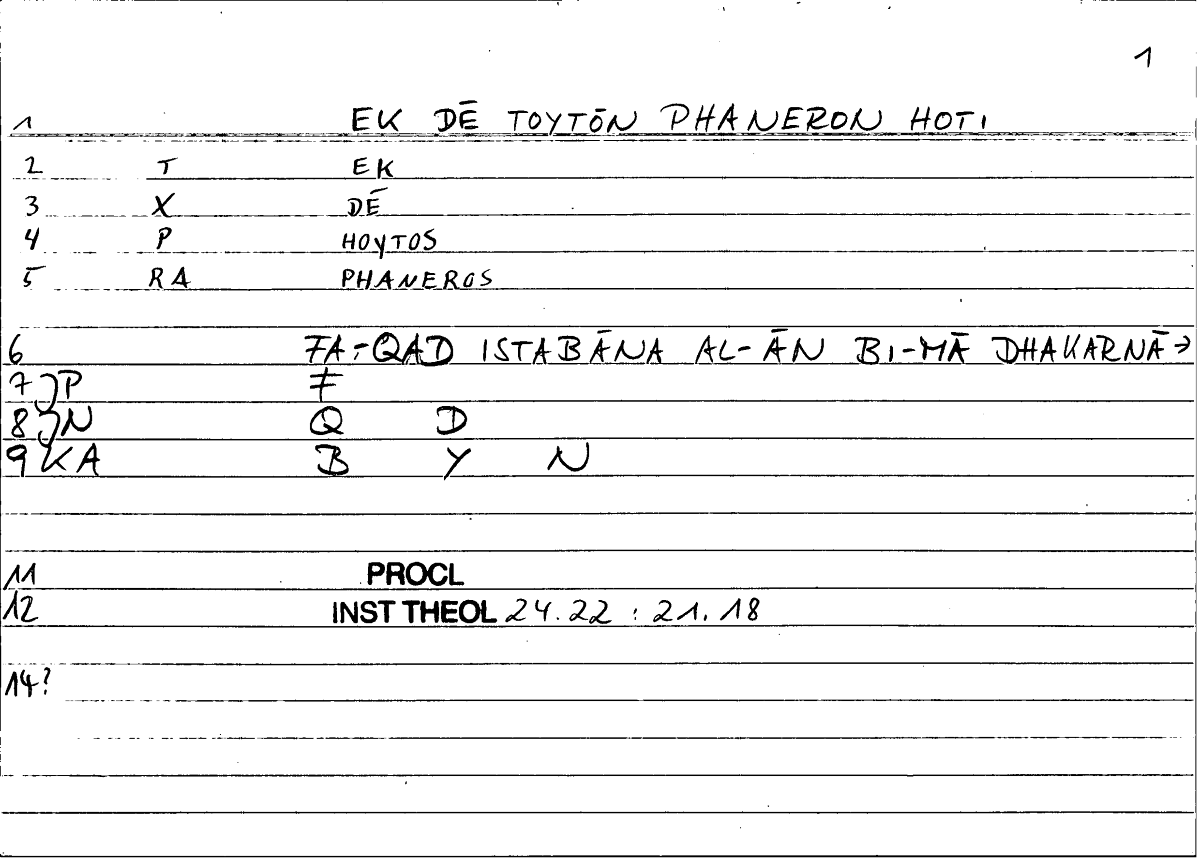 1
1 EK DĒ TOYTŌN PHANERON HOTI
2 T EK
3 X DĒ
4 P HOYTOS
5 RA PHANEROS
6 FA-QAD ISTABĀNA AL-ĀN BI-MĀ DHAKARNĀ→
7 JP F
8 JN Q D
9 KA B Y N
11 PROCL
12 INST THEOL 24.22 : 21.18
14?